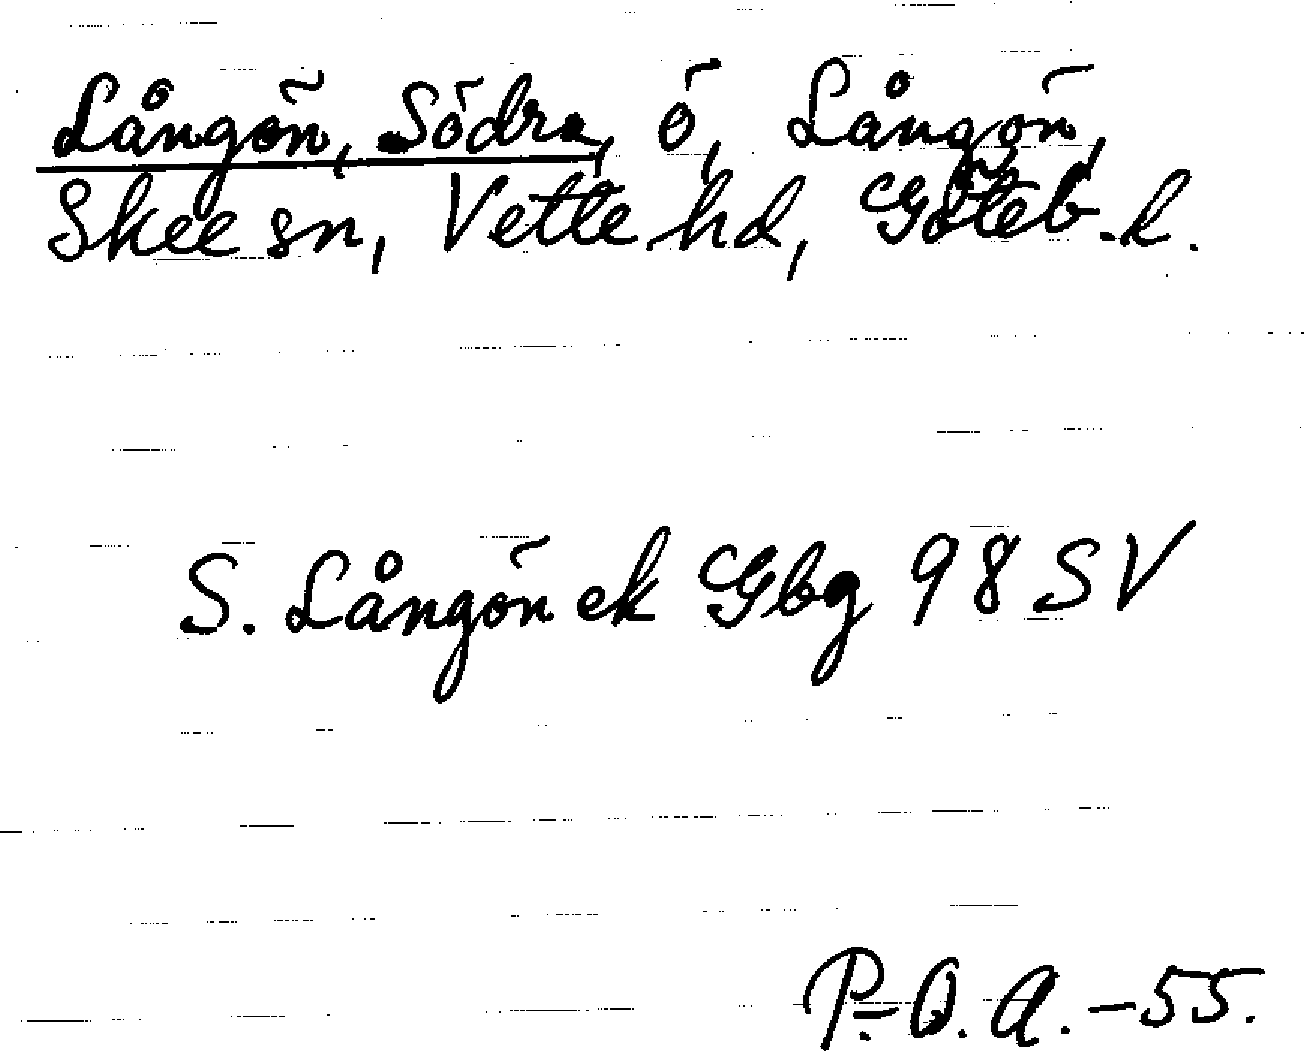 Långön, Södra, ö, Långön,
Skee sn, Vette hd, Göteb. l.
S. Långön ek Gbg 98 SV
P.-O. A. -55.